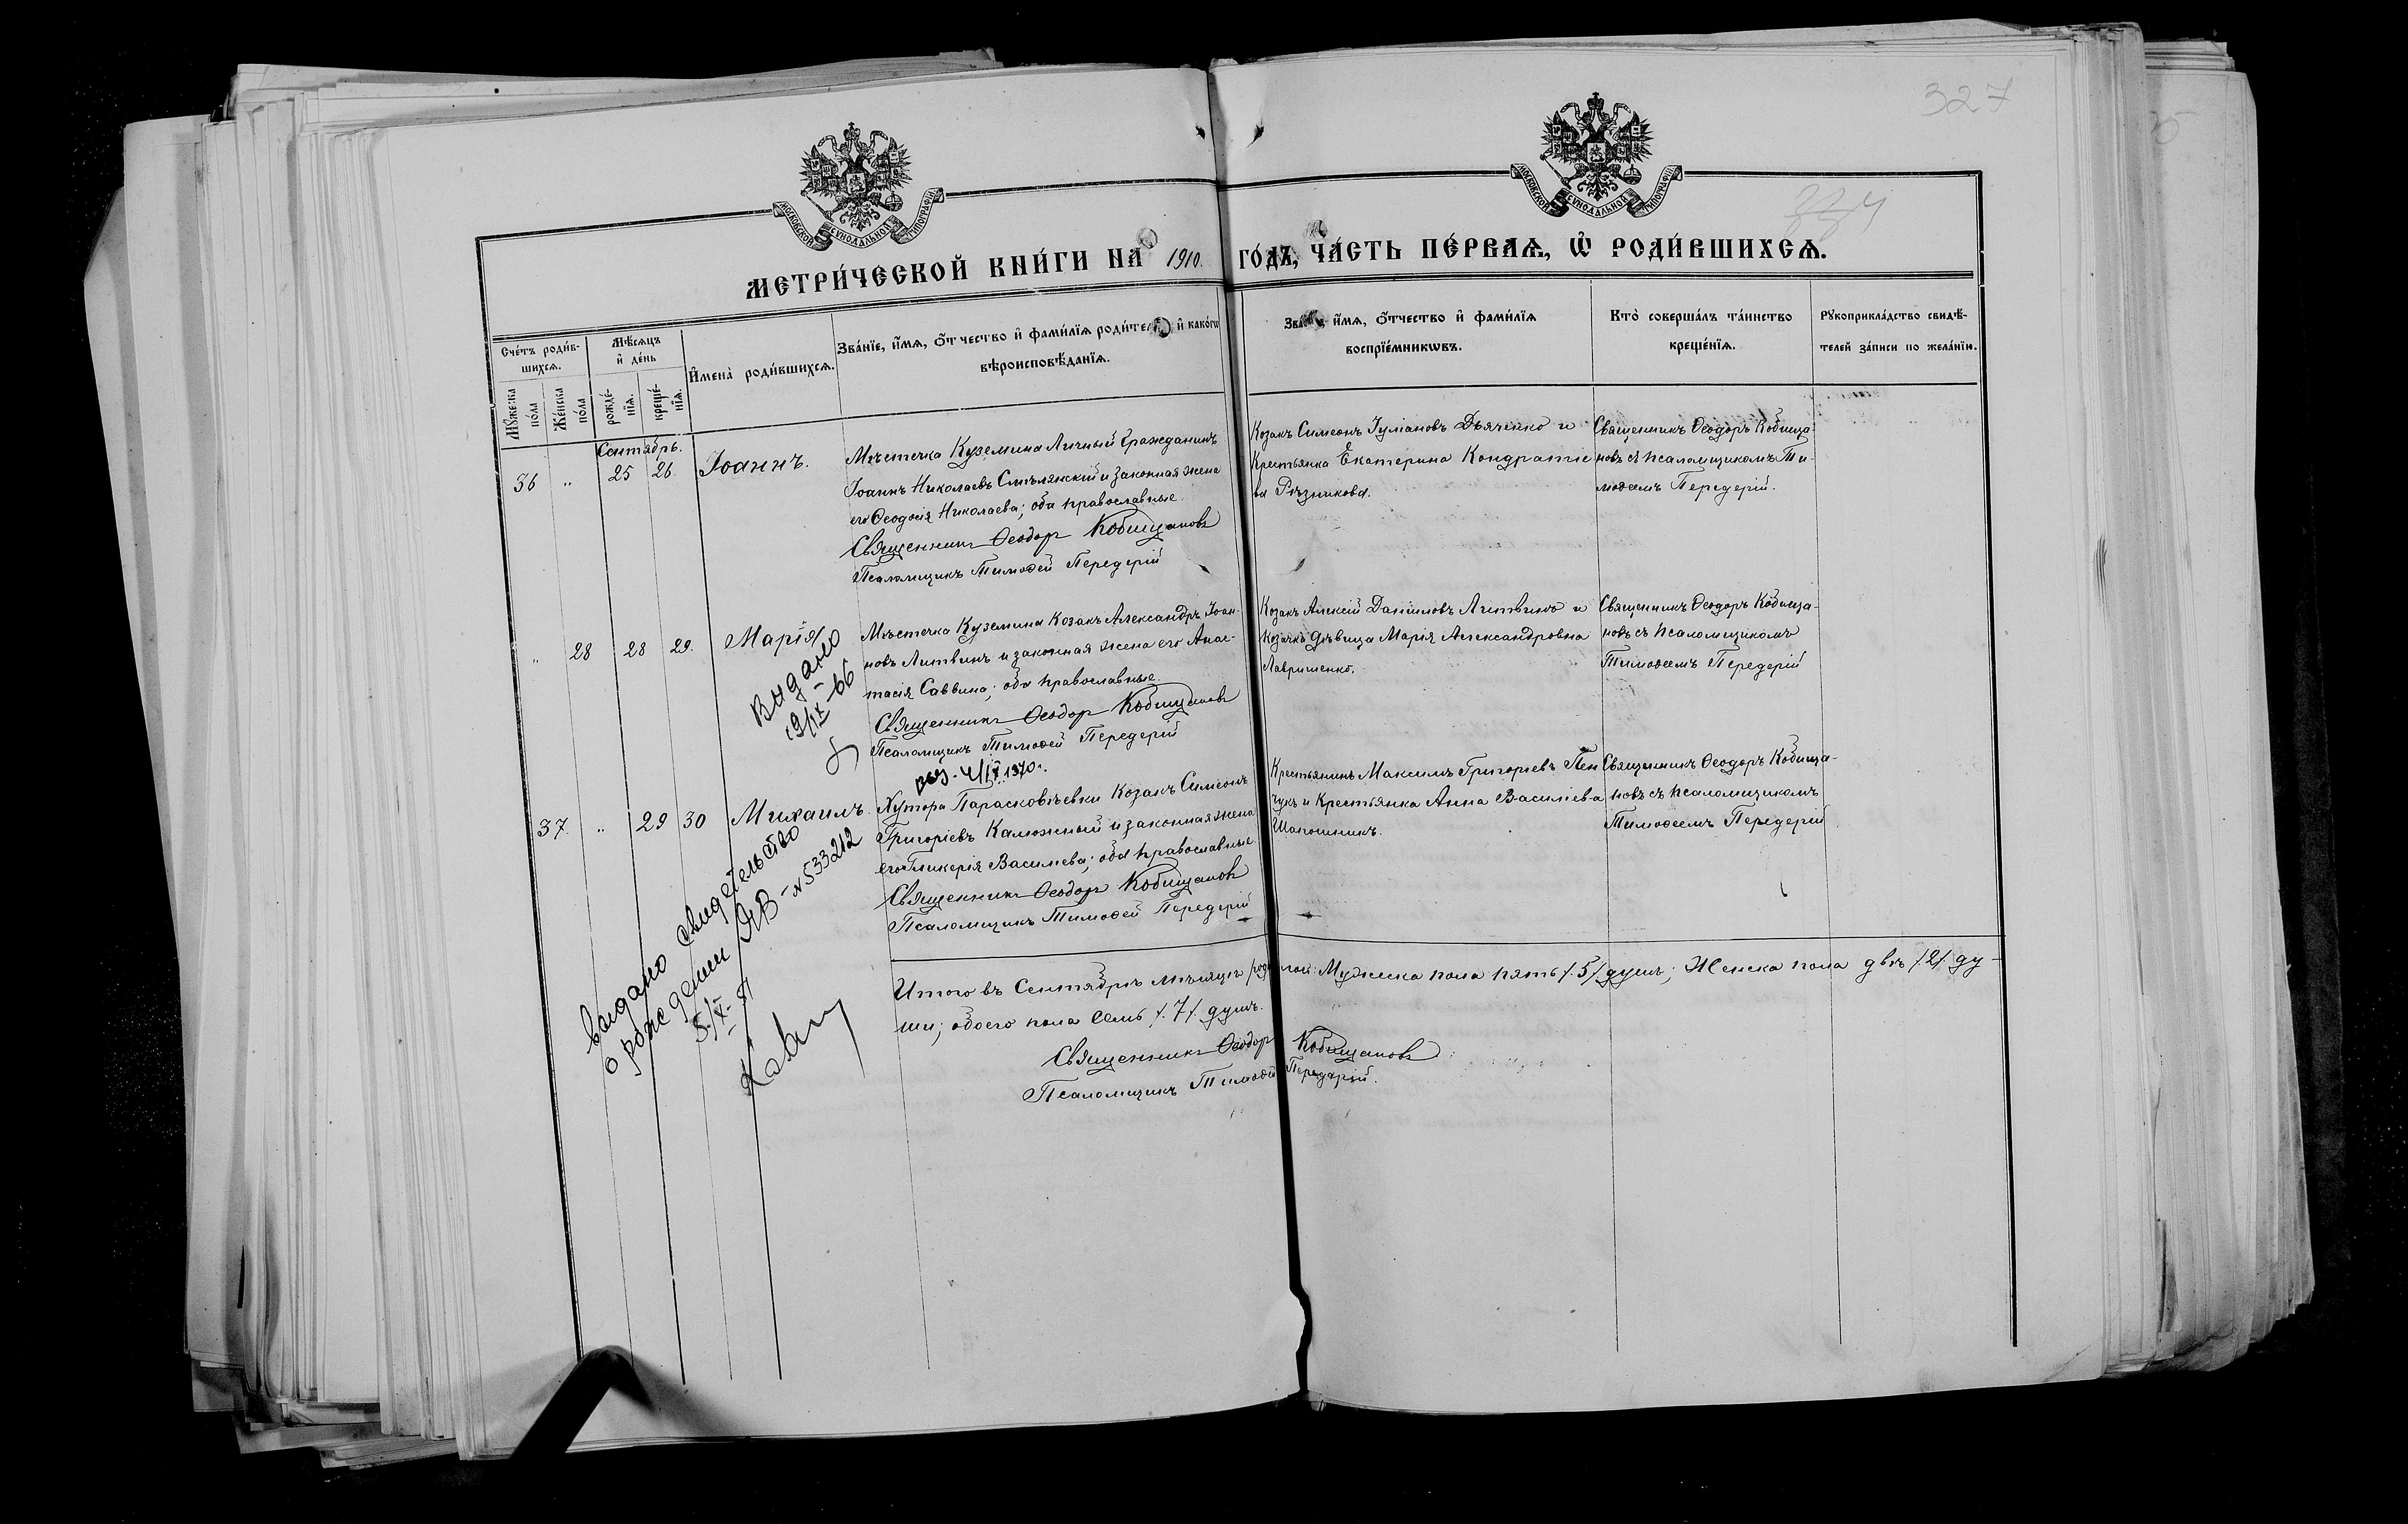 327
334
МОСКОВСКОЙ СѴНОДАЛЬНОЙ ТИПОГРАФІИ
МОСКОВСКОЙ СѴНОДАЛЬНОЙ ТИПОГРАФІИ
МЕТРИ́ЧЕСКОЙ КНИ́ГИ НА 1910. ГО́ДЪ, ЧА́СТЬ ПЕ́РВАѦ, Ѽ РОДИ́ВШИХСѦ.
Сче́тъ роди́в-
шихсѧ.
Мꙋ́жеска по́ла
Же́нска по́ла
Мѣ́сѧцъ
и҆ де́нь
рожде́-
нїѧ.
креще́-
нїѧ.
И҆мена̀ роди́вшихсѧ.
Зва́нїе, и҆́мѧ, ѻ҆́тчество и҆ фами́лїѧ роди́телей, и҆ како́гѡ
вѣроисповѣ́данїѧ.
и҆́мѧ, ѻ҆́тчество и҆ фами́лїѧ
воспрїе́мникѡвъ.
Кто̀ соверша́лъ та́инство
креще́нїѧ.
Рꙋкоприкла́дство свидѣ́-
телей за́писи по жела́нїю.
Сентябрь.
36 " 25 26. Іоаннъ.
Мѣстечка Куземина Личный Гражданинъ
Іоаннъ Николаевъ Смѣлянскій и законная жена
его Ѳеодосія Николаева; оба православные.
Священникъ Ѳеодоръ Кобищановъ
Псаломщикъ Тимоѳей Передерій
Козакъ Симеонъ Іуліановъ Дьяченко и
Крестьянка Екатерина Кондратіе
ва Рѣзникова.
Священникъ Ѳеодоръ Кобища-
новъ съ псаломщикомъ Ти-
моѳеемъ Передерій.
" 28 28 29. Марія
Мѣстечка Куземина Козакъ Александръ Іоан-
новъ Литвинъ и законная жена его Анас-
тасія Саввина; оба православные.
Священникъ Ѳеодоръ Кобищановъ
Псаломщикъ Тимоѳей Передерій
Козакъ Алексій Даніиловъ Литвинъ и
Козачка дѣвица Марія Александровна
Лавриненко.
Священникъ Ѳеодоръ Кобища-
новъ съ псаломщикомъ
Тимоѳеемъ Передерій
Видано
19/IX-66
4/IX 1970г.
37. " 29 30 Михаилъ.
Хутора Парасковѣевки Козакъ Симеонъ
Григоріевъ Калюжный и законная жена
его Гликерія Васильева; оба православные
Священникъ Ѳеодоръ Кобищановъ
Псаломщикъ Тимоѳей Передерій
Крестьянинъ Максимъ Григоріевъ Пен
чукъ и Крестьянка Анна Василіева
Шапошникъ.
Священникъ Ѳеодоръ Кобища-
новъ съ псаломщикомъ
Тимоѳеемъ Передерій
выдано свидетельство
о рождении ЯВ-№533212
5/X-
Итого въ Сентябрѣ мѣсяцѣ родилось: Мужеска пола пять /.5/. душъ; Женска пола двѣ /.2/. ду-
ши; обоего пола семь /.7/. душъ.
Священникъ Ѳеодоръ Кобищановъ
Псаломщикъ Тимоѳей Передерій.